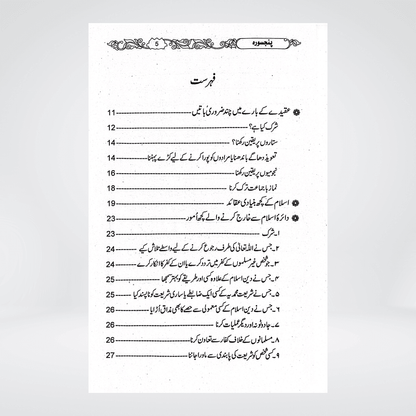 5 پنجسورہ
فہرست
عقیدے کے بارے میں چند ضروری باتیں 11
شرک کیا ہے؟ 12
ستاروں پر یقین رکھنا؟ 14
تعویذ دھاگے باندھنا یا مرادوں کو پورا کرنے کے لیے کڑے پہننا 14
نجومیوں پر یقین رکھنا 16
نماز باجماعت ترک کرنا 18
اسلام کے کچھ بنیادی عقائد 19
دائرۂ اسلام سے خارج کرنے والے کچھ اُمور 23
۱۔ شرک 23
۲۔ جس نے اللہ تعالیٰ کی طرف رجوع کرنے کے لیے واسطے تلاش کیے 24
۳۔ جو شخص غیر مسلموں کے کفر میں تردد کرے یا ان کے کفر کا انکار کرے 24
۴۔ جس نے دین اسلام کے علاوہ کسی اور طریقے کو بہتر سمجھا 25
۵۔ جس نے شریعت محمدیہ کے کسی ایک ضابطے یا ساری شریعت کو ناپسند کیا 25
۶۔ جس نے دین اسلام کے کسی معمولی سے حصے کا بھی مذاق اُڑایا 26
۷۔ جادو ٹونہ اور دیگر عملیات کرنا 26
۸۔ مسلمانوں کے خلاف کفار سے تعاون کرنا 26
۹۔ کسی شخص کو شریعت کی پابندی سے ماورا جاننا 27